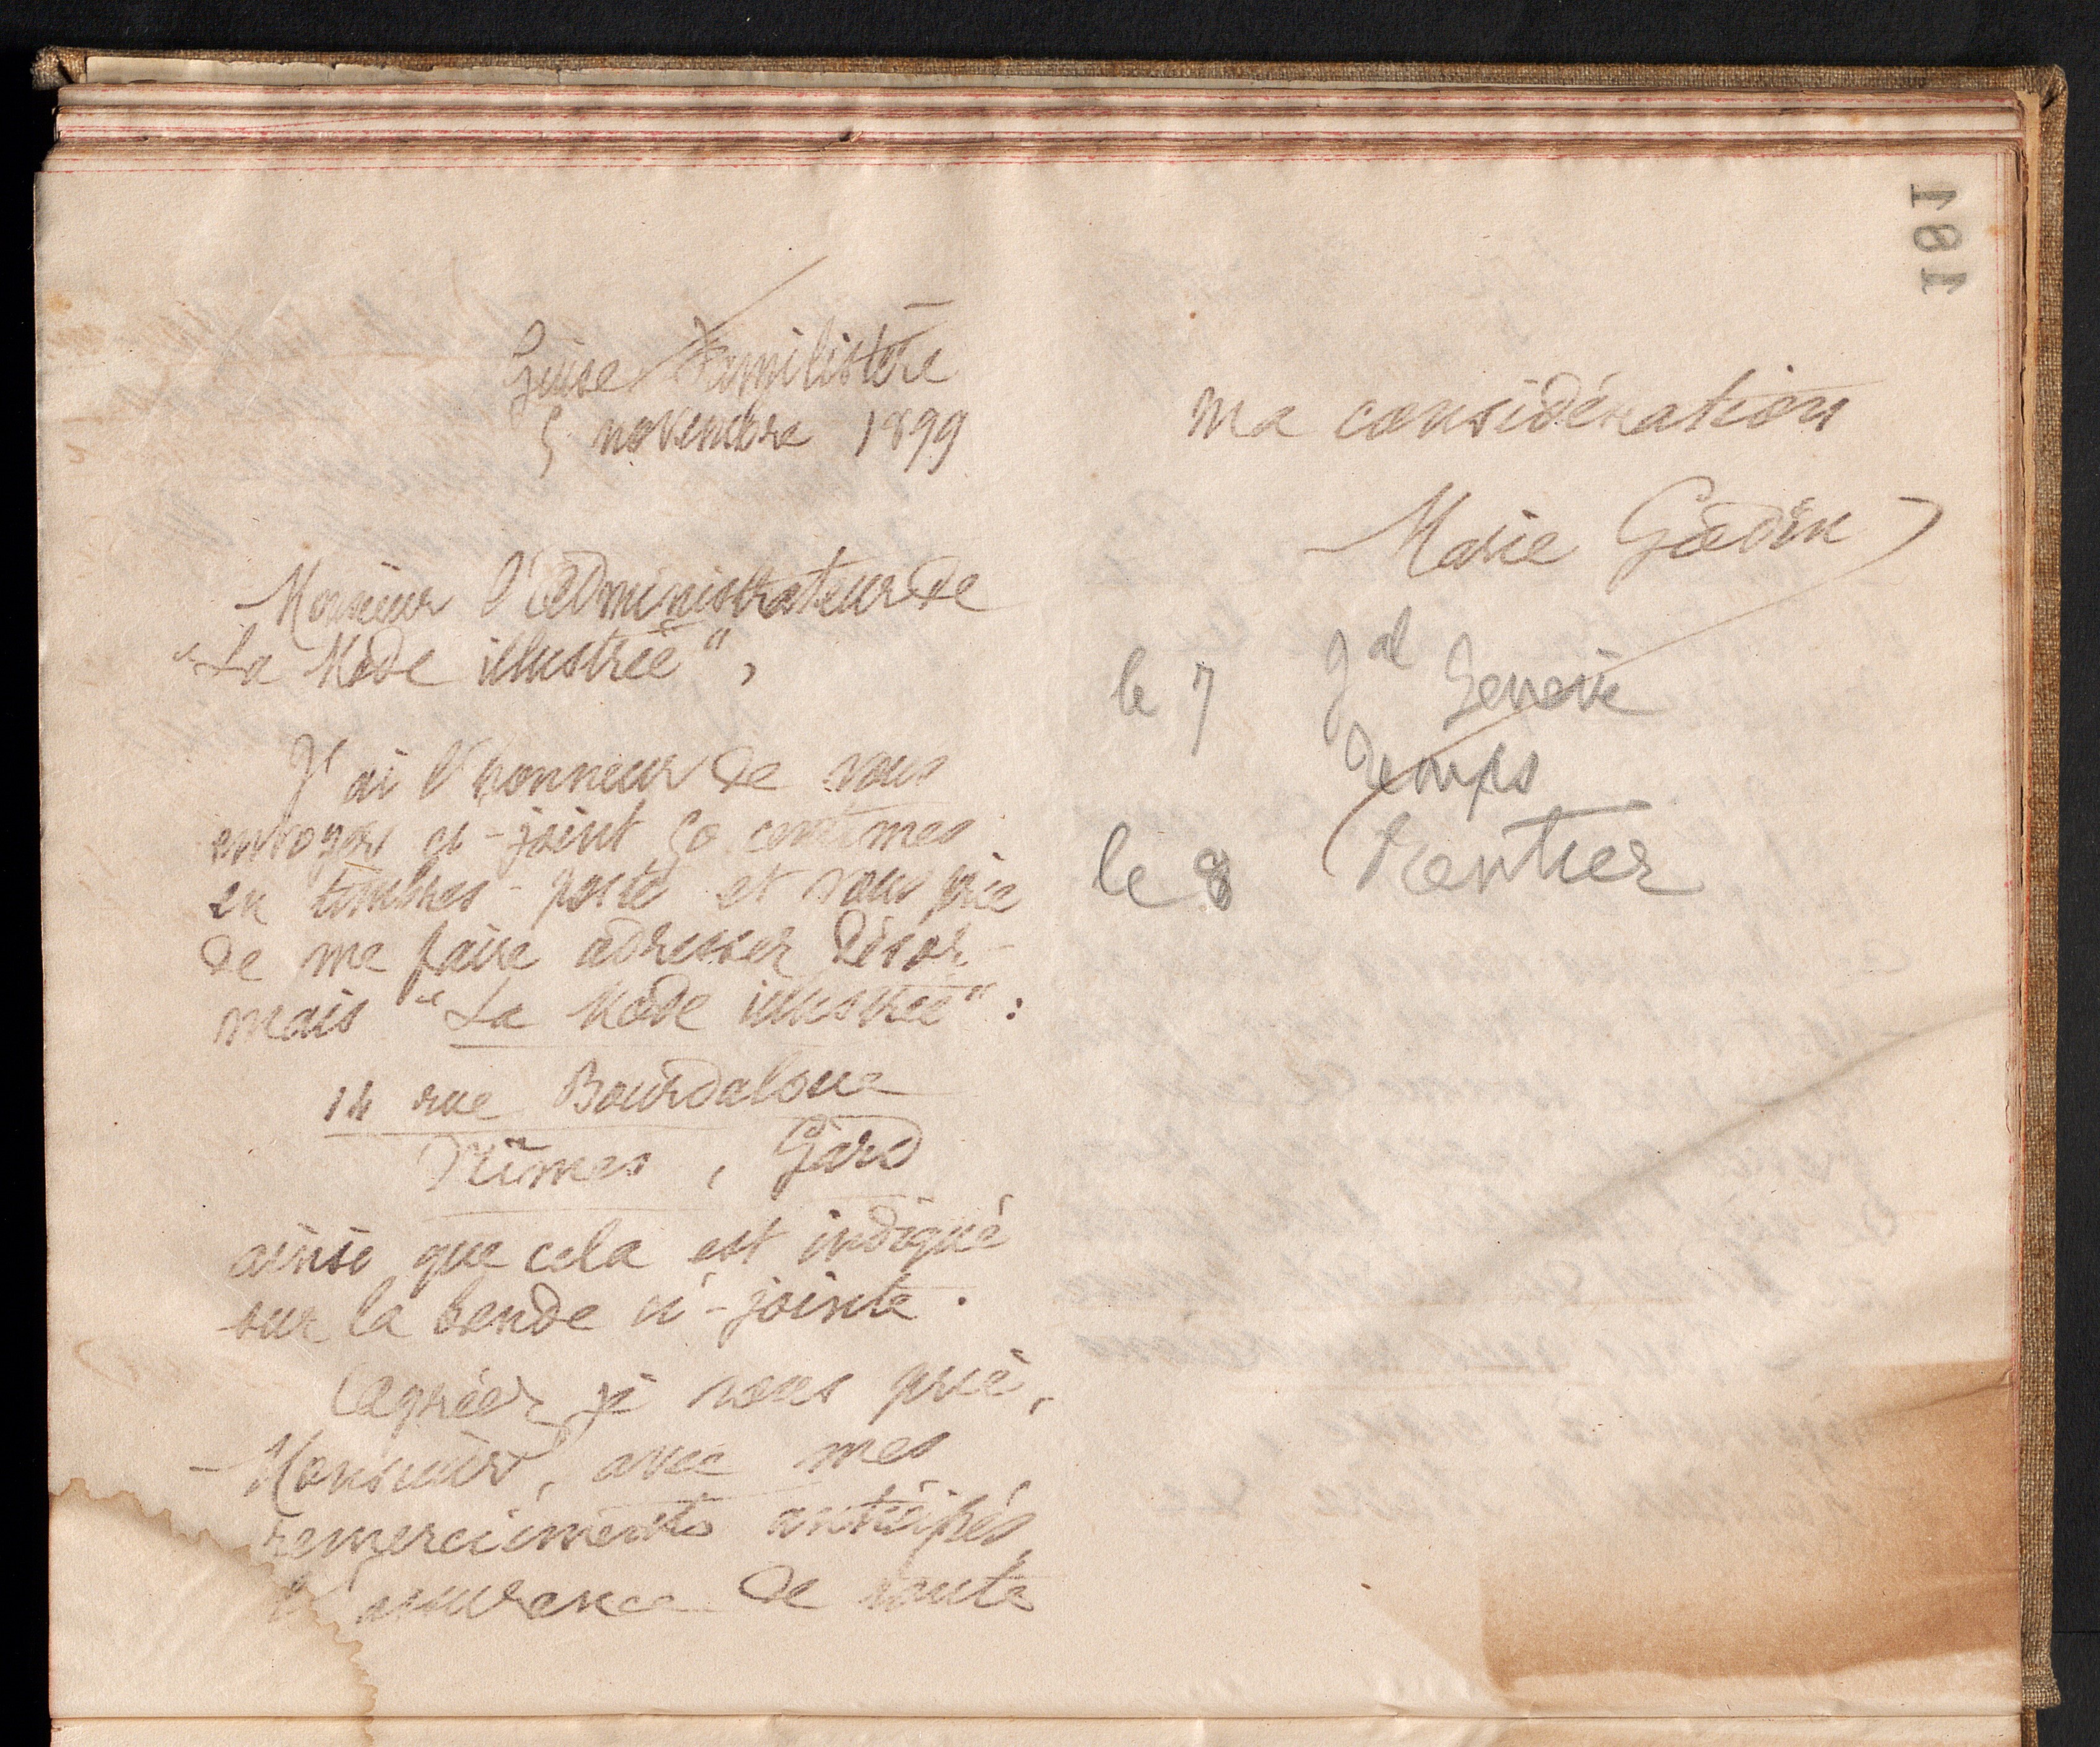 181
Guise Familistère
5 novembre 1899
Monsieur l'Administrateur de
"La Mode illustrée",
J'ai l'honneur de vous
envoyer ci-joint 50 centimes
en timbres-poste et vous prie
de me faire adresser désor-
mais "La Mode illustrée" :
14 rue Bourdaloue
Nîmes, Gard
ainsi que cela est indiqué
sur la bande ci-jointe.
Agréer, je vous prie,
Monsieur, avec mes
remerciements anticipés,
l'assurance de toute
ma considération
Marie Godin
le 7 Jal Genève
Temps
le 8